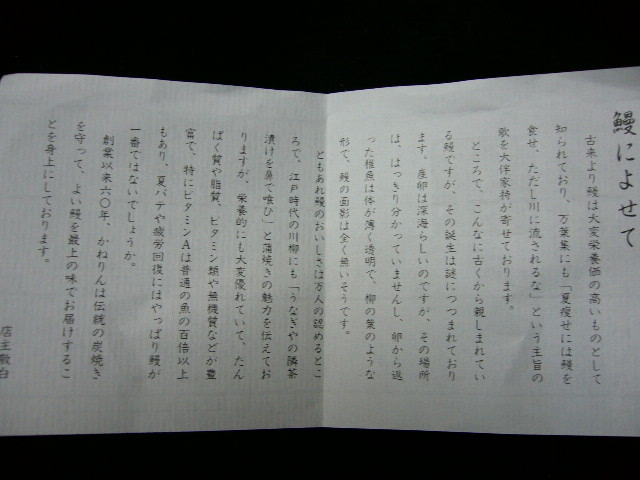 鰻によせて
古来より鰻は大変栄養価の高いものとして
知られており、万葉集にも「夏痩せには鰻を
食せ、ただし川に流されるな」という主旨の
歌を大伴家持が寄せております。
ところで、こんなに古くから親しまれてい
る鰻ですが、その誕生は謎につつまれており
ます。産卵は深海らしいのですが、その場所
は、はっきり分かっていませんし、卵から返
った稚魚は体が薄く透明で、柳の葉のような
形で、鰻の面影は全く無いそうです。
ともあれ鰻のおいしさは万人の認めるとこ
ろで、江戸時代の川柳にも「うなぎやの隣茶
漬けを鼻で喰ひ」と蒲焼きの魅力を伝えてお
りますが、栄養的にも大変優れていて、たん
ぱく質や脂質、ビタミン類や無機質などが豊
富で、特にビタミンAは普通の魚の百倍以上
もあり、夏バテや疲労回復にはやっぱり鰻が
一番ではないでしょうか。
創業以来六〇年、かねりんは伝統の炭焼き
を守って、よい鰻を最上の味でお届けするこ
とを身上にしております。
店主敬白